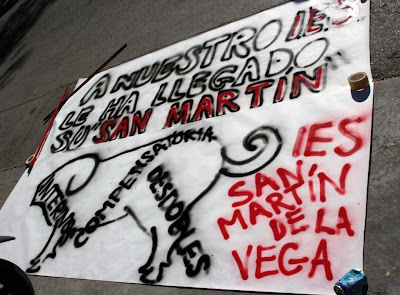 A NUESTRO IES
LE HA LLEGADO
SU "SAN MARTIN"
INTERINOS
COMPENSATORIA
DESDOBLES
IES
SAN
MARTÍN
DE LA
VEGA